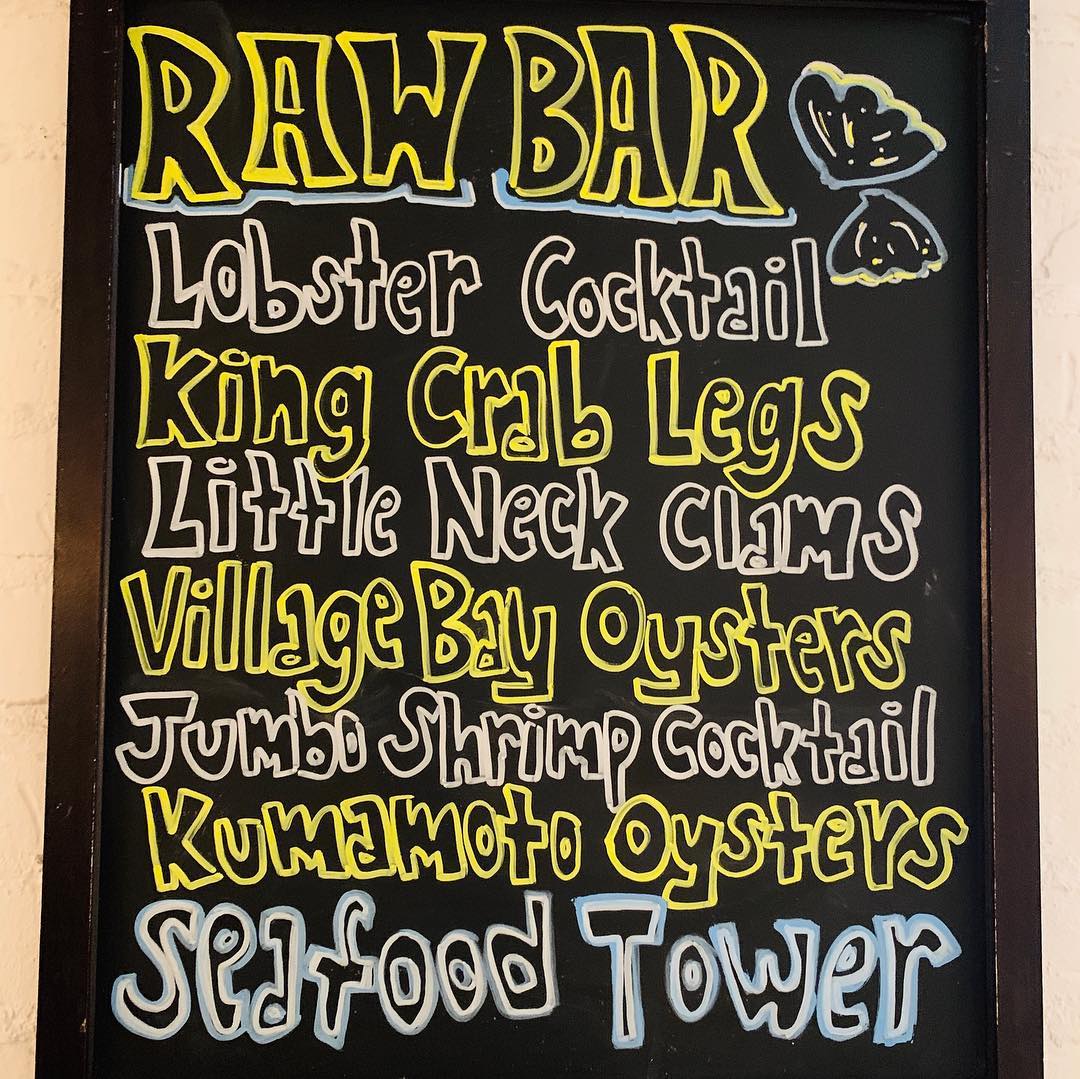 RAW BAR
Lobster Cocktail
King Crab Legs
Little Neck Clams
Village Bay Oysters
Jumbo Shrimp Cocktail
Kumamoto Oysters
Seafood Tower